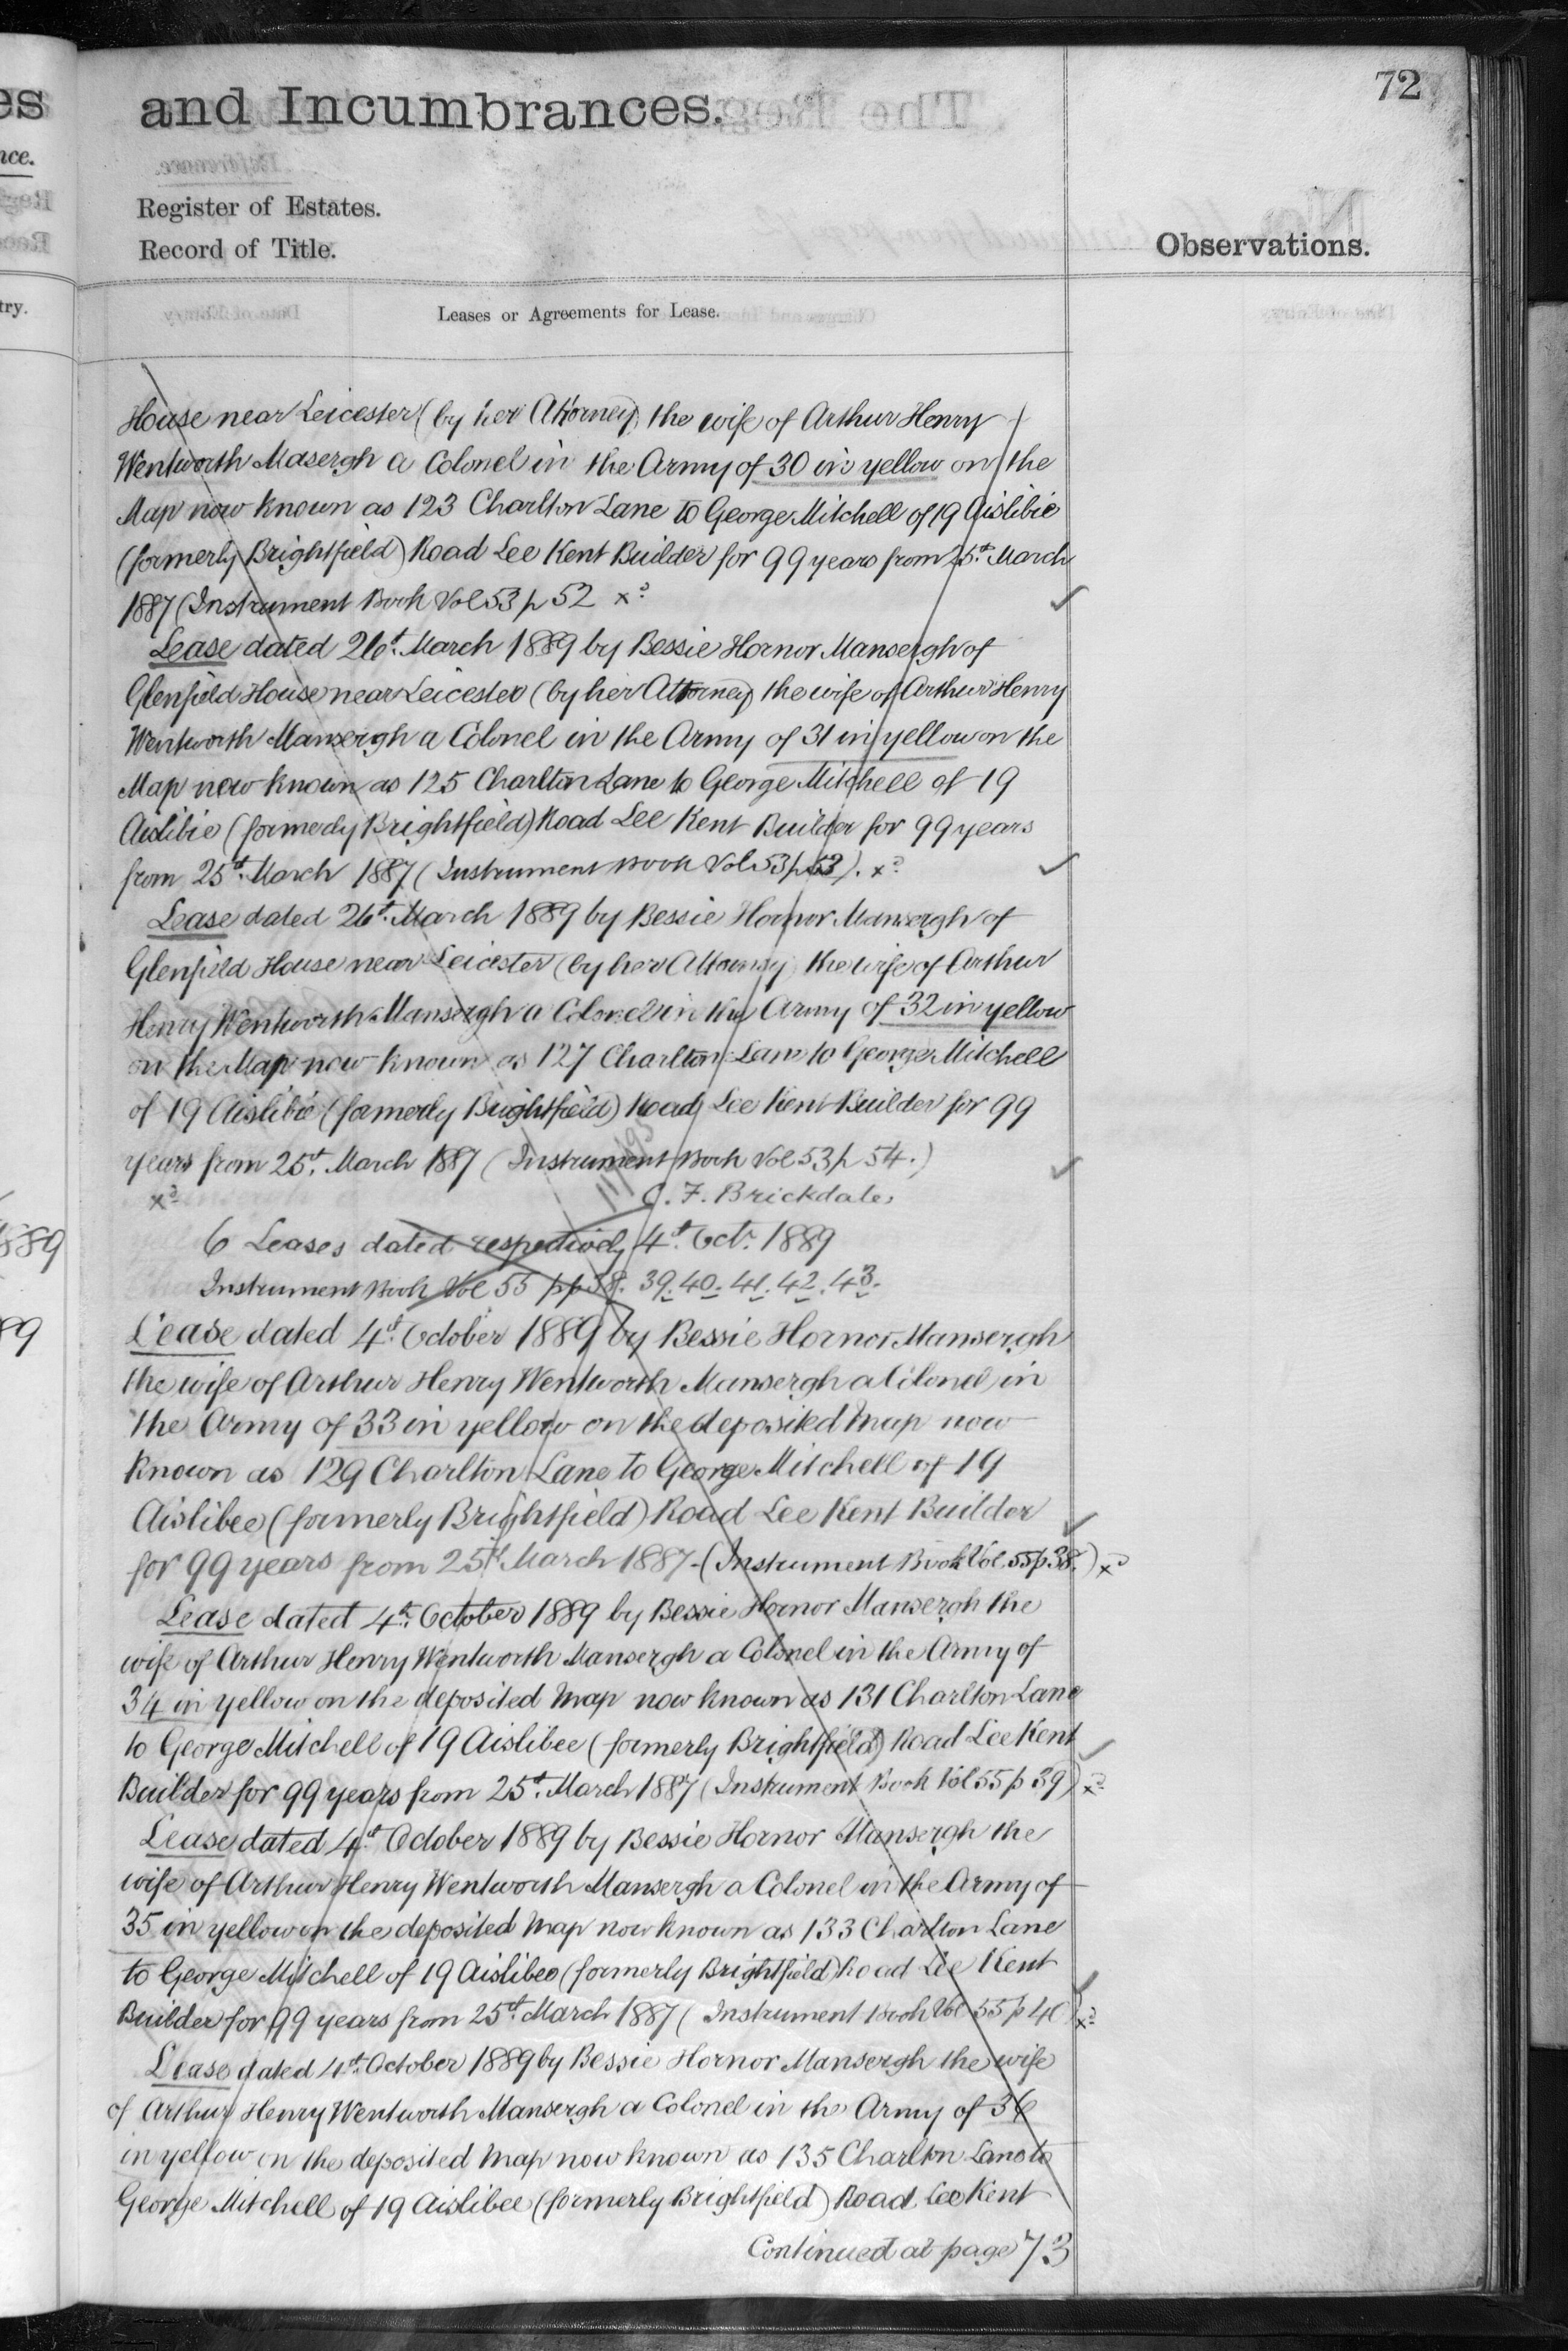 72
and Incumbrances.
Register of Estates.
Record of Title.
Observations.
Leases or Agreements for Lease.
House near Leicester (by her Attorney) the wife of Arthur Henry
Wentworth Masergh a Colonel in the Army of 30 in yellow on the
Map now known as 123 Charlton Lane to George Mitchell of 19 Aislibie
(formerly Brightfield) Road Lee Kent Builder for 99 years from 25th March
1887 (Instrument Book Vol 53 p 52
Lease dated 26th March 1889 by Bessie Hornor Mansergh of
Glenfield House near Leicester (by her Attorney) the wife of Arthur Henry
Wentworth Mansergh a Colonel in the Army of 31 in yellow on the
Map now known as 125 Charlton Lane to George Mitchell of 19
Aislibie (formerly Brightfield) Road Lee Kent Builder for 99 years
from 25th March 1887 (Instrument Book Vol 53 p 53).
Lease dated 26th March 1889 by Bessie Hornor Mansergh of
Glenfield House near Leicester (by her Attorney) the wife of Arthur
Henry Wentworth Mansergh a Colonel in the Army of 32 in yellow
on the Map now known as 127 Charlton Lane to George Mitchell
of 19 Aislibie (formerly Brightfield) Road Lee Kent Builder for 99
years from 25th March 1887 (Instrument Book Vol 53 p 54.)
C. F. Brickdale.
6 Leases dated respectively 4th Oct. 1889
Instrument Book Vol 55 pp 38. 39. 40. 41. 42. 43.
Lease dated 4th October 1889 by Bessie Hornor Mansergh
the wife of Arthur Henry Wentworth Mansergh a Colonel in
the Army of 33 in yellow on the deposited Map now
known as 129 Charlton Lane to George Mitchell of 19
Aislibee (formerly Brightfield) Road Lee Kent Builder
for 99 years from 25th March 1887 - (Instrument Book Vol. 55 p 38.)
Lease dated 4th October 1889 by Bessie Hornor Mansergh the
wife of Arthur Henry Wentworth Mansergh a Colonel in the Army of
34 in yellow on the deposited Map now known as 131 Charlton Lane
to George Mitchell of 19 Aislibee (formerly Brightfield) Road Lee Kent
Builder for 99 years from 25th March 1887 (Instrument Book Vol 55 p 39)
Lease dated 4th October 1889 by Bessie Hornor Mansergh the
wife of Arthur Henry Wentworth Mansergh a Colonel in the Army of
35 in yellow on the deposited Map now known as 133 Charlton Lane
to George Mitchell of 19 Aislibee (formerly Brightfield) Road Lee Kent
Builder for 99 years from 25th March 1887 (Instrument Book Vol 55 p 40)
Lease dated 4th October 1889 by Bessie Hornor Mansergh the wife
of Arthur Henry Wentworth Mansergh a Colonel in the Army of 36
in yellow on the deposited Map now known as 135 Charlton Lane to
George Mitchell of 19 Aislibee (formerly Brightfield) Road Lee Kent
Continued at page 73